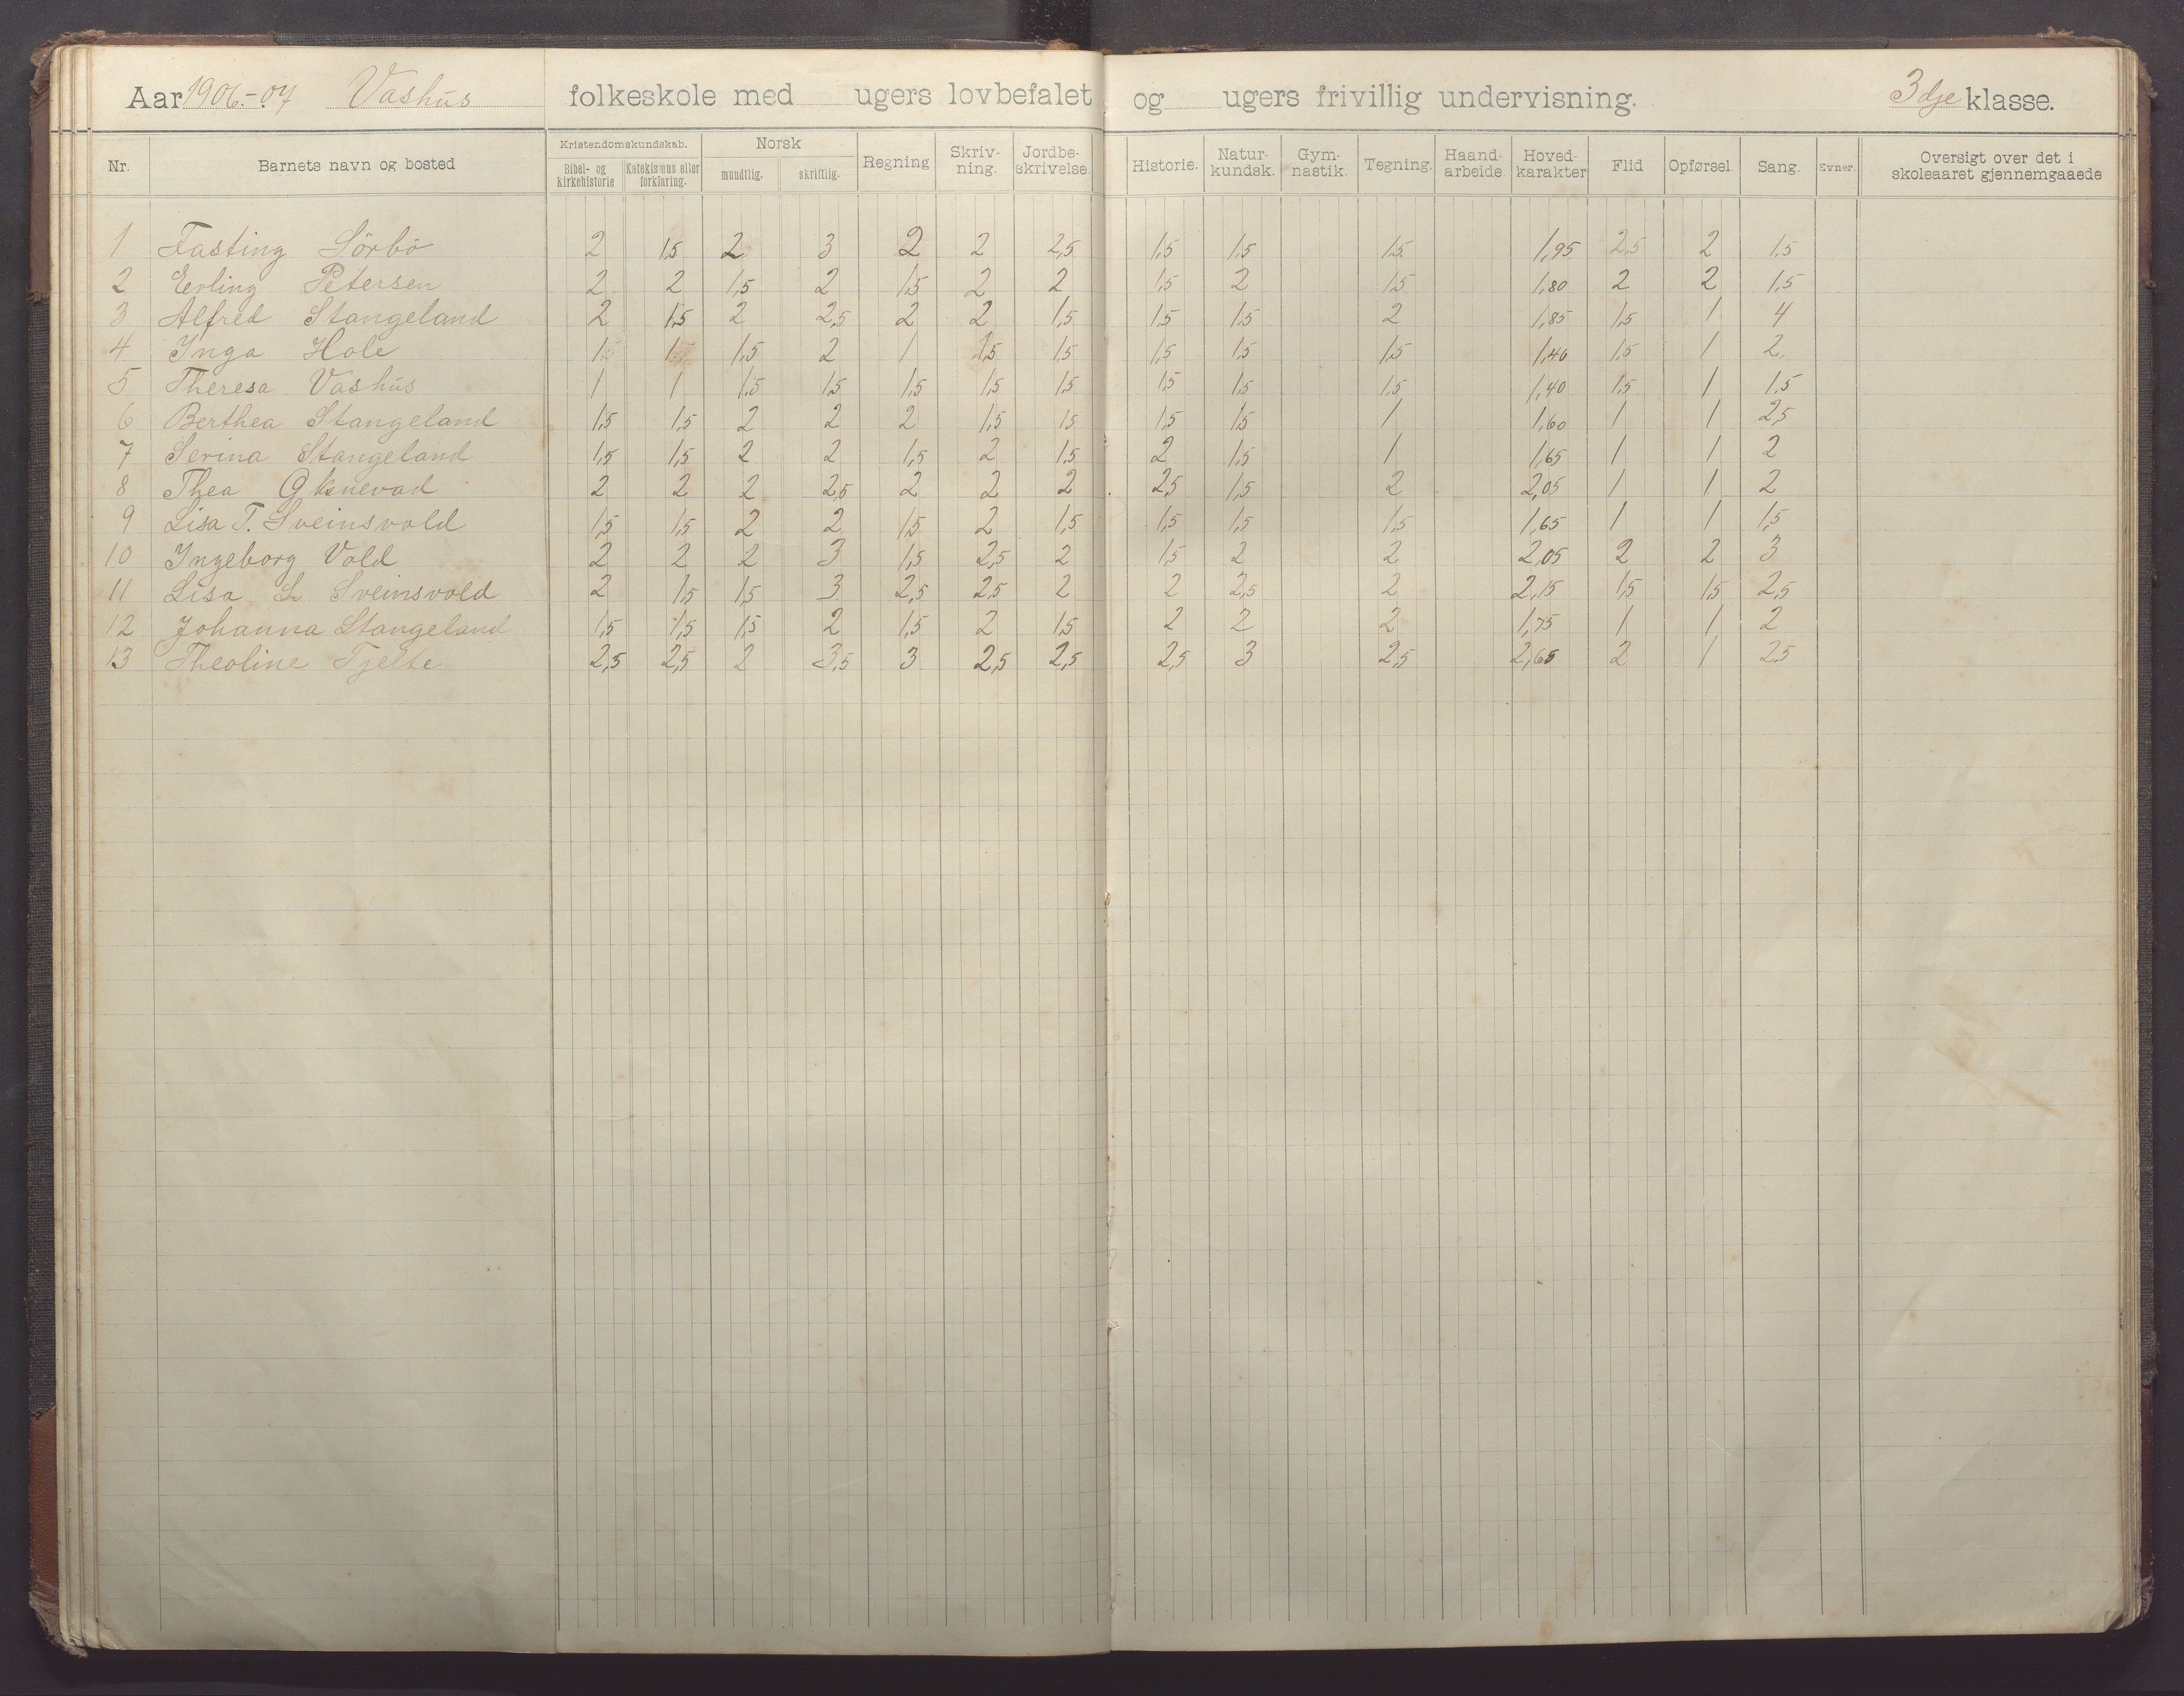 Aar 1906.-.07 Vashus folkeskole med ugers lovbefalet og ugers frivillig undervisning. 3dje klasse.
Nr. Barnets navn og bosted Kristendomskundskab. Bibel- og kirkehistorie Katekismus eller forklaring. Norsk mundtlig. skriftlig. Regning Skriv-ning. Jordbe-skrivelse. Historie. Natur-kundsk. Gym-nastik. Tegning. Haand-arbeide. Hoved-karakter Flid Opførsel. Sang. Evner. Oversigt over det i skoleaaret gjennemgaaede
1 Fasting Sörbö 2 1,5 2 3 2 2 2,5 1,5 1,5 1,5 1,95 2,5 2 1,5
2 Erling Petersen 2 2 1,5 2 1,5 2 2 1,5 2 1,5 1,80 2 2 1,5
3 Alfred Stangeland 2 1,5 2 2,5 2 2 1,5 1,5 1,5 2 1,85 1,5 1 4
4 Inga Hole 1 1 1,5 2 1 1,5 1,5 1,5 1,5 1,5 1,40 1,5 1 2
5 Theresa Vashus 1 1 1,5 1,5 1,5 1,5 1,5 1,5 1,5 1,5 1,40 1,5 1 1,5
6 Berthea Stangeland 1,5 1,5 2 2 2 1,5 1,5 1,5 1,5 1 1,60 1 1 2,5
7 Serina Stangeland 1,5 1,5 2 2 1,5 2 1,5 2 1,5 1 1,65 1 1 2
8 Thea 2 2 2 2,5 2 2 2 2,5 1,5 2 2,05 1 1 2
9 Lisa T. Sveinsvold 1,5 1,5 2 2 1,5 2 1,5 1,5 1,5 1,5 1,65 1 1 1,5
10 Ingeborg Vold 2 2 2 3 1,5 2,5 2 1,5 2 2 2,05 2 2 3
11 Lisa L. Sveinsvold 2 1,5 1,5 3 2,5 2,5 2 2 2,5 2 2,15 1,5 1,5 2,5
12 Johanna Stangeland 1,5 1,5 1,5 2 1,5 2 1,5 2 2 2 1,75 1 1 2
13 Theoline Tjelte 2,5 2,5 2 3,5 3 2,5 2,5 2,5 3 2,5 2,65 2 1 2,5